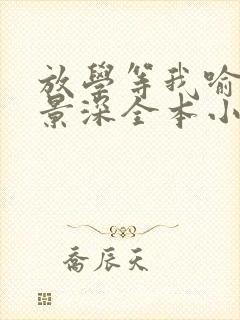 放學等我喻
景深全本小
喬辰天